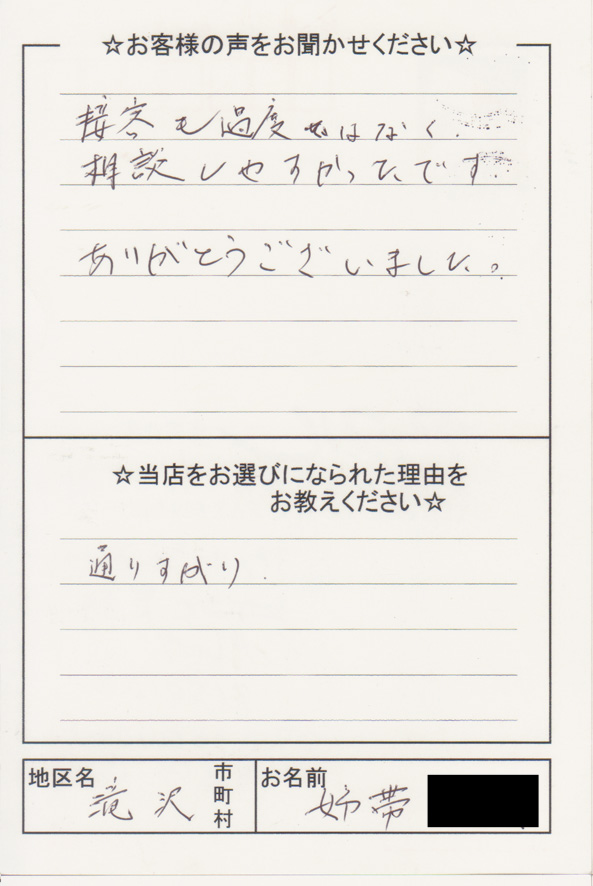 ☆お客様の声をお聞かせください☆
接客も過度ではなく.
相談しやすかったです.
ありがとうございました。
☆当店をお選びになられた理由を
お教えください☆
通りすがり.
地区名 滝沢 市町村
お名前 姉帯